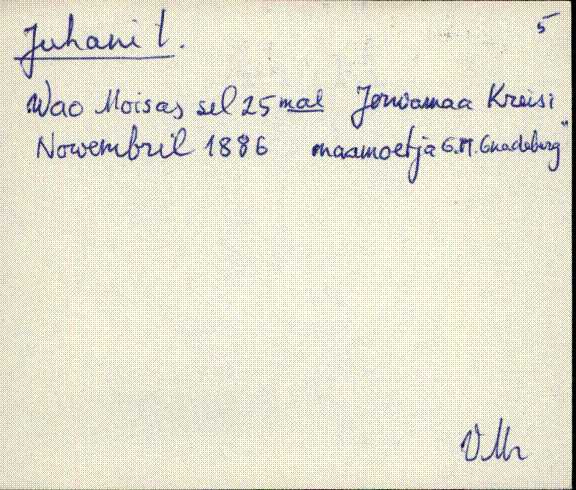 Juhani t.
5
Wao Moisas sel 25mal Jerwamaa Kreisi
Nowembril 1886 maamoetja G.M. Gnadeburg"
VMr